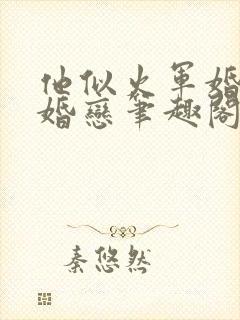 他似火军婚
婚恋笔趣阁
秦悠然